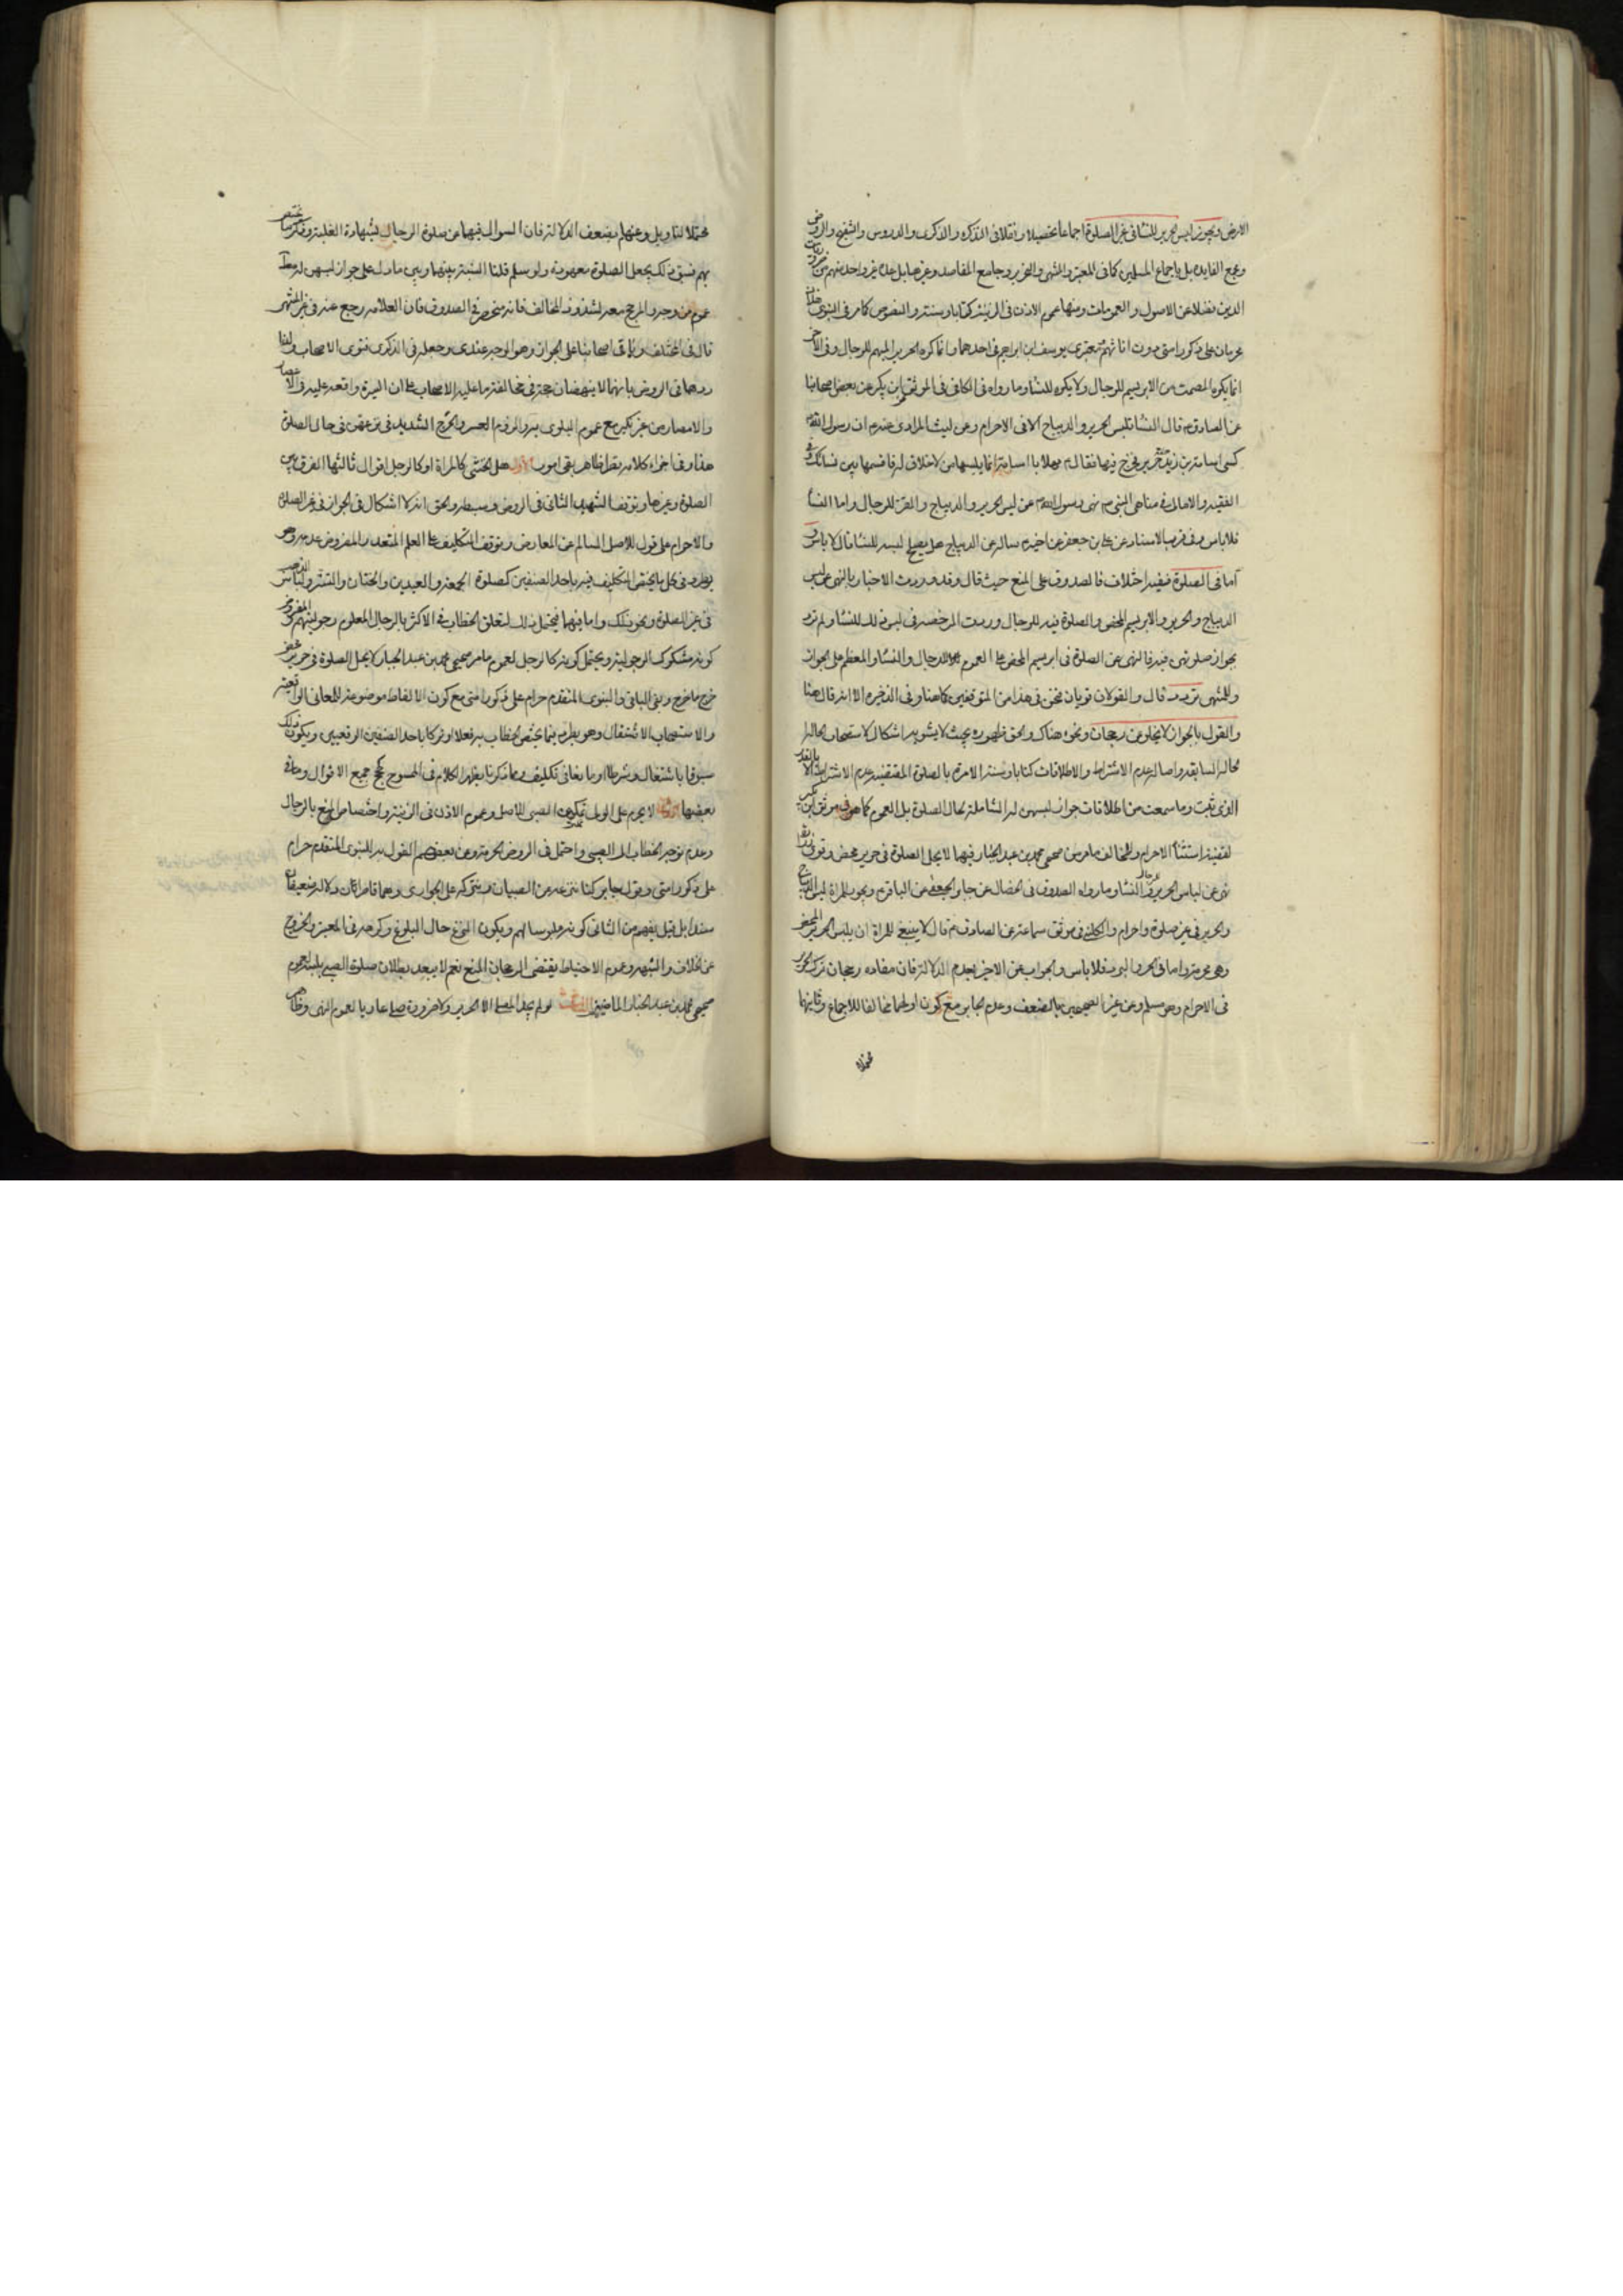 الارض ويجوز لبس الحرير للنساء في غير الصلوة اجماعا تحصيلا ونقلا في التذكرة والذكرى والدروس والتنقيح والروض
ومجمع الفايدة بل باجماع المسلمين كما في المعتبر والمنتهى والتحرير وجامع المقاصد وغيرها بل عده غير واحد منهم من ضروريات
الدين فضلا عن الاصول والعمومات ومنها عموم الاذن في الزينة كتابا وسنة والنصوص كما مر في النبوي هذان
محرمان على ذكور امتي دون اناثهم ومعتبرى يوسف ابن ابراهيم في احدهما وانما كره الحرير المبهم للرجال وفي الاخر
انما يكره المصمت من الابريسم للرجال ولا يكره للنساء وما رواه في الكافي في الموثق لابن بكير عن بعض اصحابنا
عن الصادق ع قال النساء تلبس الحرير والديباج الا في الاحرام وعن ليث المرادي عنه ع ان رسول الله ص
كسى اسامة بن زيد حلة حرير فخرج فيها فقال ص مهلا يا اسامة انما يلبسها من لا خلاق له فاقسمها بين نسائك وفي
الفقيه والامالي في مناهي النبي ص نهى رسول الله ص عن لبس الحرير والديباج والقز للرجال واما النساء
فلا باس وفي قرب الاسناد عن علي بن جعفر عن اخيه ع ساله عن الديباج هل يصلح لبسه للنساء قال لا باس و
اما في الصلوة ففيه اختلاف فالصدوق على المنع حيث قال وقد وردت الاخبار بالنهي عن لبس
الديباج والحرير والابريسم المحض والصلوة فيه للرجال ووردت الرخصة في لبس ذلك للنساء ولم ترد
بجواز صلوتهن فيه فالنهي عن الصلوة في ابريسم المحض على العموم للرجال والنساء والمعظم على الجواز
وللمنتهى تردد قال والقولان قويان فنحن في هذا من المتوقفين كما هنا وفي الذخيرة الا انه قال هنا
والقول بالجواز لا يخلو من رجحان ونحوه هناك والحق ظهوره بحيث لا يشوبه اشكال لاستصحاب الحالة
الحالة السابقة واصالة عدم الاشتراط والاطلاقات كتابا وسنة الامرة بالصلوة المقتضية عدم الاشتراط الا بالقدر
الذي ثبت وما سمعت من اطلاقات جواز لبسهن له الشاملة لحال الصلوة بل العموم كما هو في موثق ابن بكير
لقضية استثناء الاحرام والمخالف ما مر من صحيحي محمد بن عبد الجبار فيهما لا يحل الصلوة في حرير محض وقوي زرارة
نهى عن لباس الحرير للرجال والنساء وما رواه الصدوق في الخصال عن جابر الجعفي عن الباقر ع ويجوز للمراة لبس الديباج
والحرير في غير صلوة واحرام والكليني في موثق سماعة عن الصادق ع قال لا ينبغي للمراة ان يلبس الحرير المحض
وهي محرمة واما في الحر والبرد فلا باس والجواب عن الاخير بعدم الدلالة فان مفاده رجحان ترك الحرير
في الاحرام وهو مسلم وعن غير الصحيحين بالضعف وعدم الجابر مع كون اولهما مخالفا للاجماع وثانيهما
محتملا
محتملا للتاويل وعنهما بضعف الدلالة فان السوال فيهما عن صلوة الرجال بشهادة الغلبة وذكر ما يختص
بهم فسبق ذلك يجعل الصلوة معهودة ولو سلم قلنا النسبة بينهما وبين ما دل على جواز لبسهن له مطلقا
عموم من وجه والمرجح معه لشذوذ المخالف فانه منحصر في الصدوق فان العلامة رجع عنه في غير المنتهى
قال في المختلف وباقي اصحابنا على الجواز وهو الوجه عندي وجعله في الذكرى فتوى الاصحاب ولذا
ردهما في الروض بانهما لا ينهضان حجة في مخالفة ما عليه الاصحاب على ان السيرة واقعة عليه في الاعصار
والامصار من غير نكير مع عموم البلوى به ولزوم العسر والحرج الشديد في نزعهن في حال الصلوة
هذا وفي اجزاء كلامه نظر ظاهر بقي امور الاول هل الخنثى كالمراة او كالرجل اقوال ثالثها الفرق بين
الصلوة وغيرها وتوقف الشهيد الثاني في الروض وسبطه والحق انه لا اشكال في الجواز في غير الصلوة
والاحرام على قول للاصل السالم عن المعارض وتوقف التكليف على العلم المتعذر المفروض عدمه وهو
يطرد في كل ما يختص التكليف فيه باحد الصنفين كصلوة الجمعة والعيدين والختان والتستر ولباس الذهب
في غير الصلوة ونحو ذلك واما فيهما فيحتمل ذلك لتعلق الخطاب في الاكثر بالرجال المعلوم رجوليتهم والمفروض
كونه مشكوك الرجولية ويحتمل كونه كالرجل لعموم ما مر صحيحي محمد بن عبد الجبار لا يحل الصلوة في حرير محض
خرج ما خرج وبقي الباقي والنبوي المتقدم حرام على ذكور امتي مع كون الالفاظ موضوعة للمعاني الواقعية
والاستصحاب الاشتغال وهو يطرد فيما يختص الخطاب به فعلا او تركا باحد الصنفين الرقعيين ويكون ذلك
مسبوقا باشتغال وشرطا او مانعا في تكليف ومما ذكرنا يظهر الكلام في الممسوح حجج جميع الاقوال وما في
بعضها الثاني لا يحرم على الولي تمكين الصبي للاصل وعموم الاذن في الزينة واختصاص المنع بالرجال
وعدم توجه الخطاب الى الصبي واحتمل في الروض الحرمة وعن بعضهم القول به للنبوي المتقدم حرام
على ذكور امتي وبقول جابر كنا ننزعه من الصبيان ونتركه على الجواري وهما قاصران دلالة وضعيفان
سندا بل قيل يفهم من الثاني كونه ملبوسا لهم ويكون النزع حال البلوغ وكرهه في المعتبر والخروج
عن الخلاف والشبهة وعموم الاحتياط يقتضي رجحان المنع نعم لا يبعد بطلان صلوة الصبي بلبسه لعموم
صحيحي محمد بن عبد الجبار الماضيين الثالث لو لم يجد المصلي الا الحرير ولا ضرورة صلى عاريا لعموم النهي وظاهر